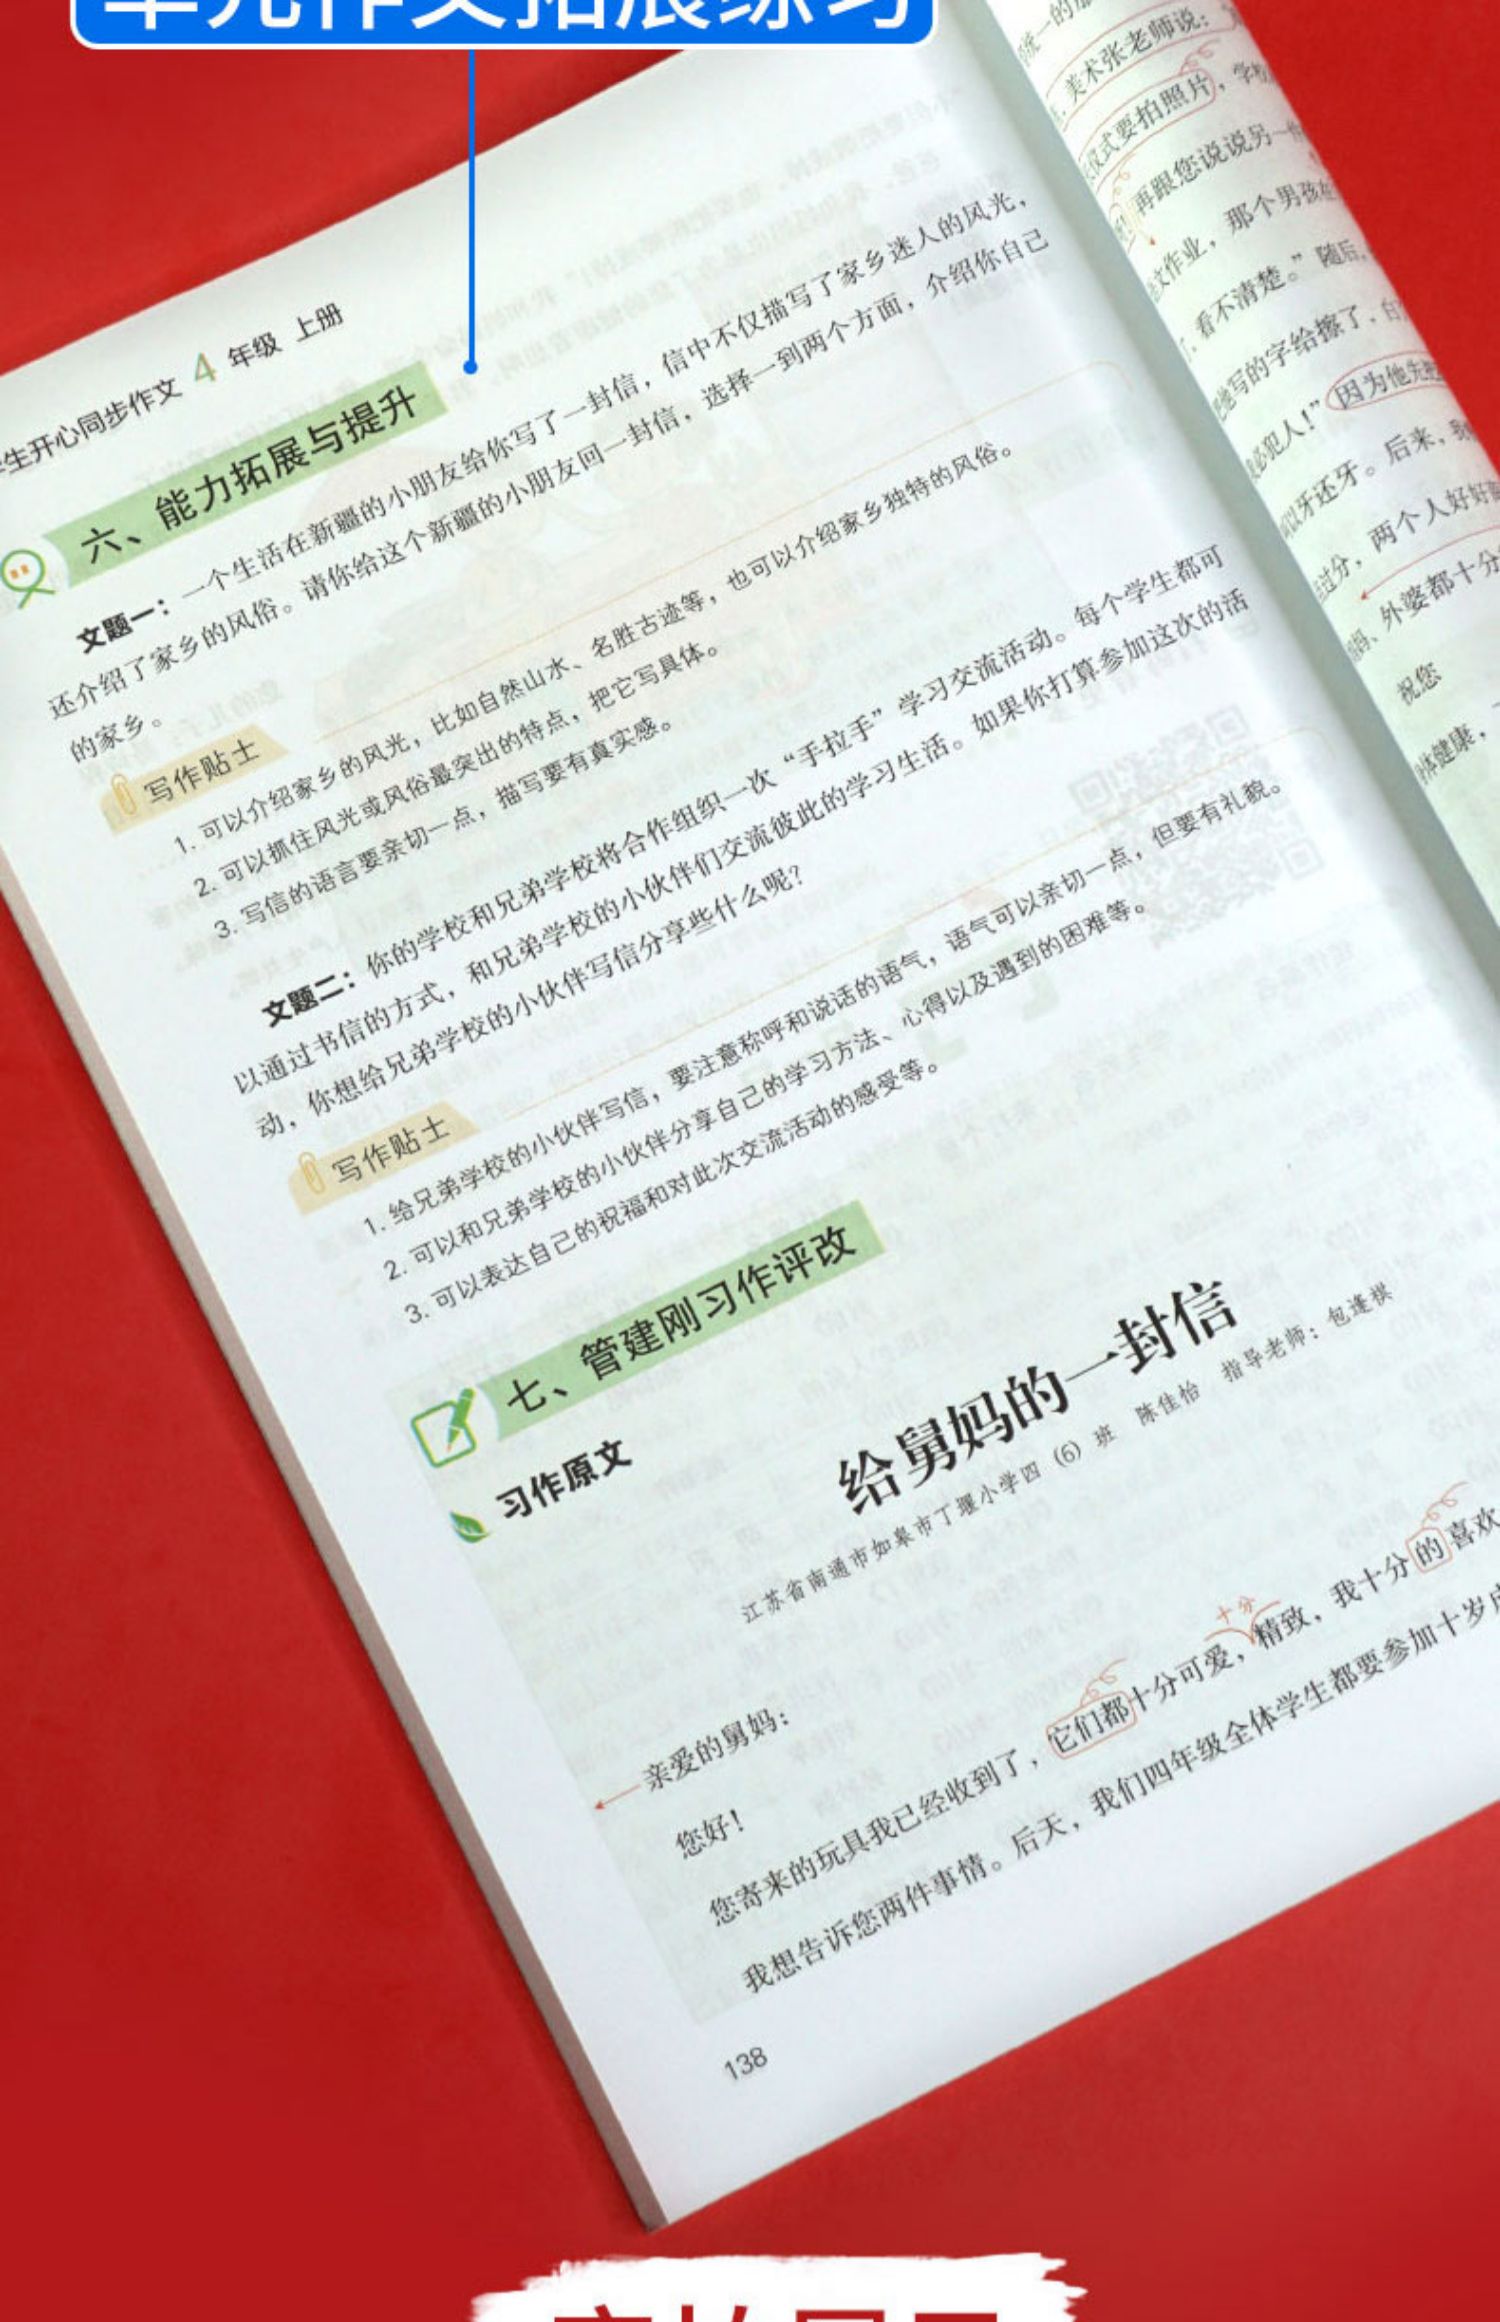 单元作文拓展练习
学生开心同步作文 4 年级 上册
六、能力拓展与提升
文题一：一个生活在新疆的小朋友给你写了一封信，信中不仅描写了家乡迷人的风光，
还介绍了家乡的风俗。请你给这个新疆的小朋友回一封信，选择一到两个方面，介绍你自己
的家乡。
写作贴士
1. 可以介绍家乡的风光，比如自然山水、名胜古迹等，也可以介绍家乡独特的风俗。
2. 可以抓住风光或风俗最突出的特点，把它写具体。
3. 写信的语言要亲切一点，描写要有真实感。
文题二：你的学校和兄弟学校将合作组织一次“手拉手”学习交流活动。每个学生都可
以通过书信的方式，和兄弟学校的小伙伴们交流彼此的学习生活。如果你打算参加这次的活
动，你想给兄弟学校的小伙伴写信分享些什么呢？
写作贴士
1. 给兄弟学校的小伙伴写信，要注意称呼和说话的语气，语气可以亲切一点，但要有礼貌。
2. 可以和兄弟学校的小伙伴分享自己的学习方法、心得以及遇到的困难等。
3. 可以表达自己的祝福和对此次交流活动的感受等。
七、管建刚习作评改
习作原文
给舅妈的一封信
江苏省南通市如皋市丁堰小学四（6）班 陈佳怡 指导老师：包逢祺
亲爱的舅妈：
您好！
十分
您寄来的玩具我已经收到了，它们都十分可爱，精致，我十分的喜欢
我想告诉您两件事情。后天，我们四年级全体学生都要参加十岁
138
美术张老师说：
仪式要拍照片，学校
再跟您说说另一
文作业，那个男孩在
看不清楚。”随后，
他写的字给擦了，
必犯人！”因为他先
以牙还牙。后来，我
过分，两个人好好
外婆都十分
祝您
体健康，